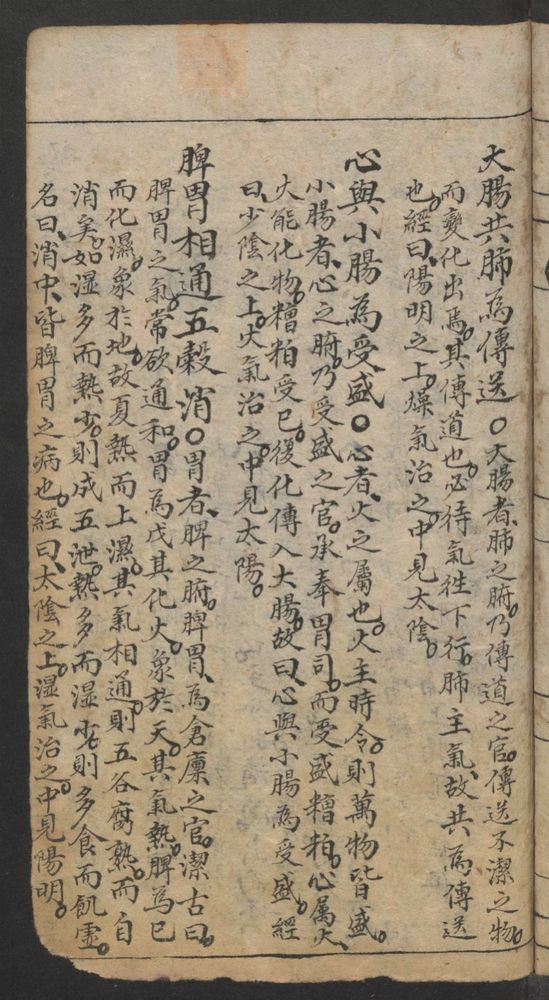 大腸共肺為傳送○大腸者、肺之腑。乃傳道之官。傳送不潔之物。
而變化出焉。其傳道也。必待氣徃下行。肺主氣、故共為傳送
也。經曰、陽明之上。燥氣治之。中見太陰。
心與小腸為受盛○心者、火之屬也。火主時令。則萬物皆盛。
小腸者、心之腑。乃受盛之官。承奉胃司。而受盛糟粕。心屬火、
火能化物。糟粕受已。復化傳入大腸。故曰、心與小腸為受盛。經
曰、少陰之上。火氣治之。中見太陽。
脾胃相通五穀消○胃者、脾之腑。脾胃、為倉廩之官。潔古曰。
脾胃之氣。常欲通和。胃為戊其化火。象於天。其氣熱。脾為已
而化濕。象於地。故夏熱而上濕。其氣相通。則五谷腐熟。而自
消矣。如湿多而熱少。則成五泄。熱多而湿少。則多食而飢虛。
名曰、消中、皆脾胃之病也。經曰、太陰之上。湿氣治之。中見陽明。